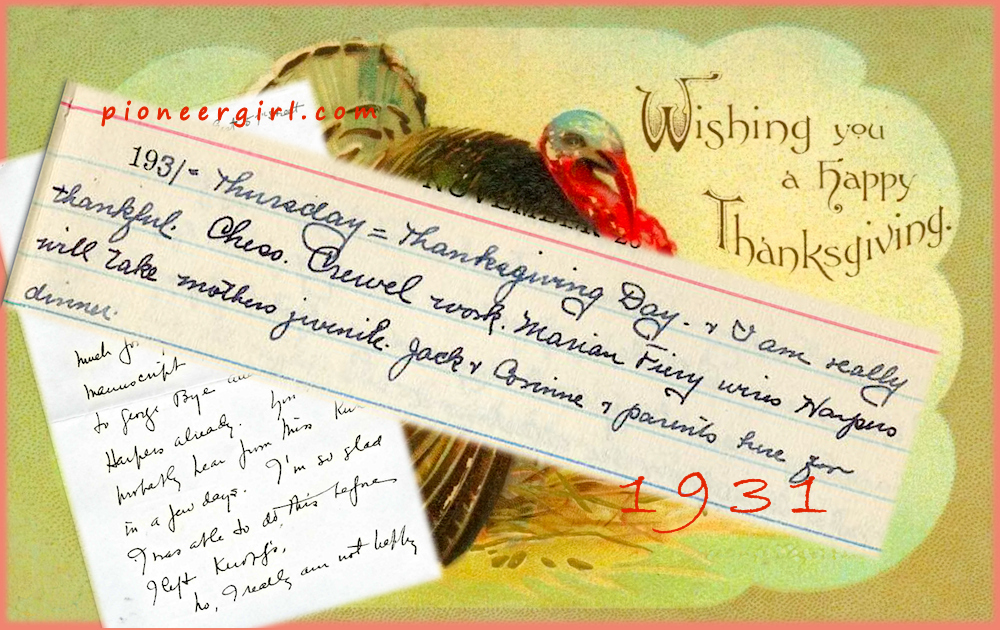 pioneergirl.com
Wishing you
a Happy
Thanksgiving.
NOVEMBER 26
1931 - Thursday = Thanksgiving Day. & I am really
thankful. Chess. Crewel work. Marian Fiery wires Harpers
will take mothers juvenile. Jack & Corinne & parents here for
dinner.
1931
much for
manuscript
to George Bye
Harpers already.
probably hear from Miss
in a few days. I'm so glad
I was able to do this before
I left Knopf's.
No, I really am not happy